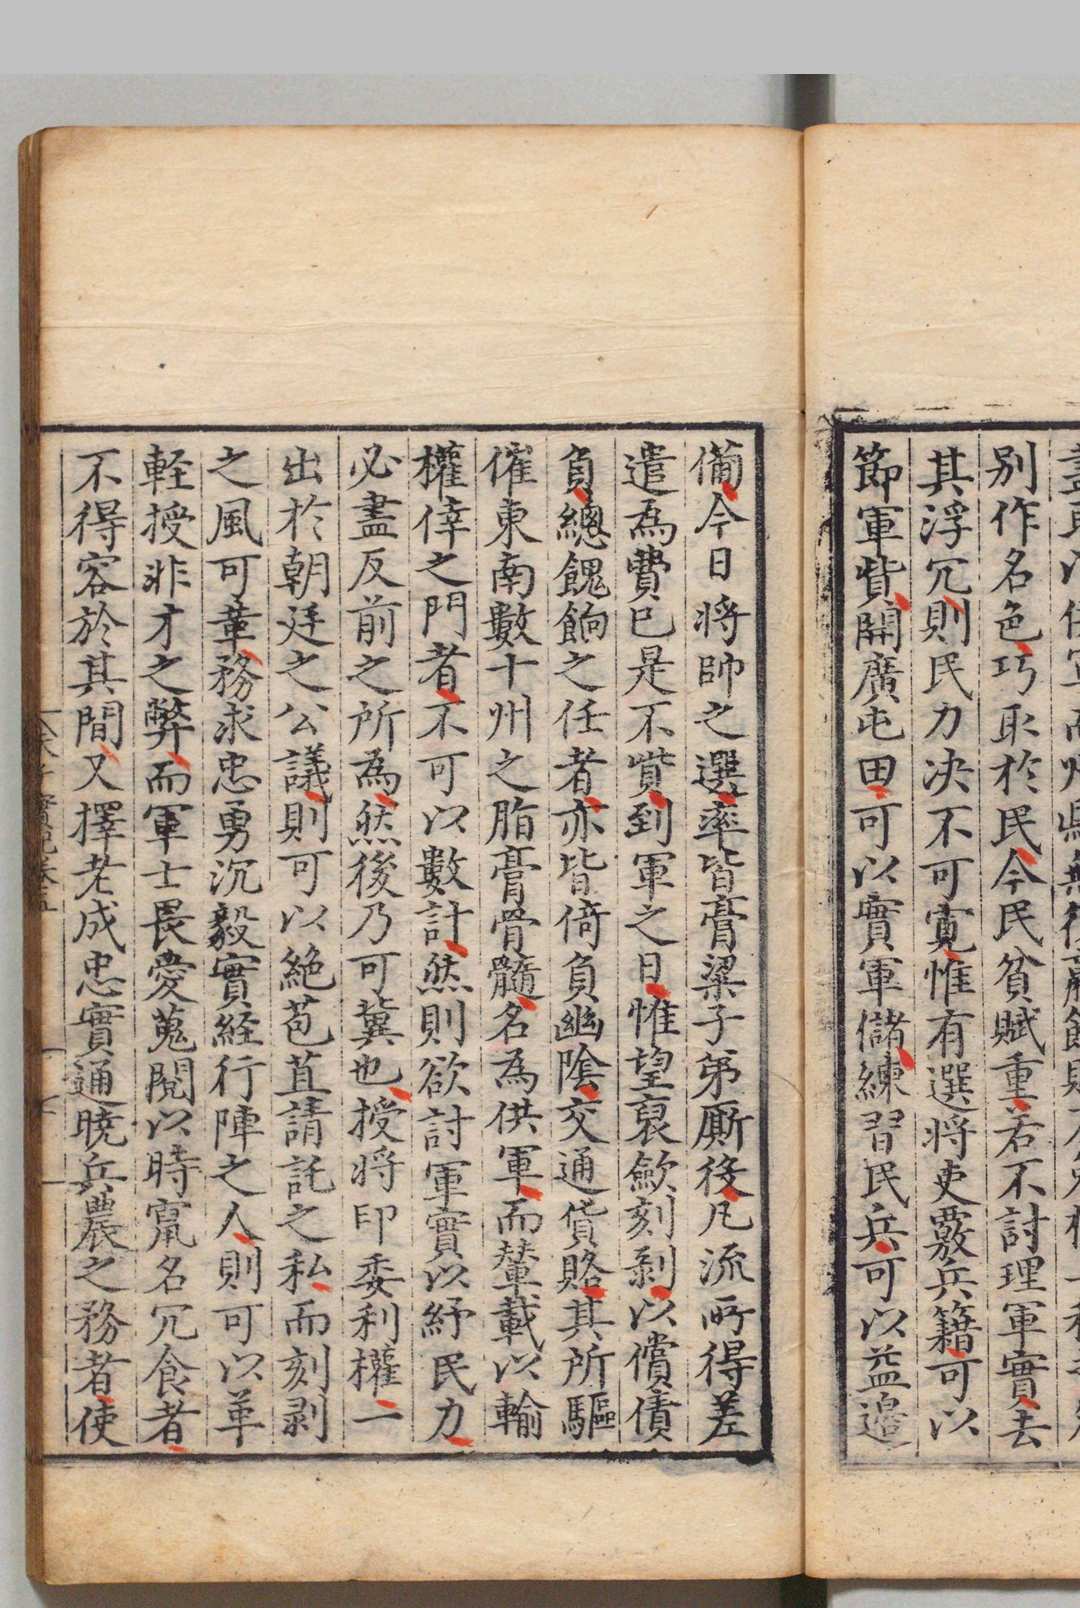 別作名色巧取於民今民貧賦重若不討理軍實去
其浮冗則民力決不可寬惟有選将吏覈兵籍可以
節軍貲開廣屯田可以實軍儲練習民兵可以益邉
備今日将帥之選率皆膏粱子弟厮役凡流所得差
遣為費已是不貲到軍之日惟望裒歛刻剥以償債
負總餽餉之任者亦皆倚負幽陰交通貨賂其所驅
催東南數十州之脂膏骨髓名為供軍而輦載以輸
權倖之門者不可以數計然則欲討軍實以紓民力
必盡反前之所為然後乃可冀也授将印委利權一
出於朝廷之公議則可以絶苞苴請託之私而刻剥
之風可革務求忠勇沉毅實経行陣之人則可以革
軽授非才之弊而軍士畏愛蒐閲以時竄名冗食者
不得容於其間又擇老成忠實通曉兵農之務者使